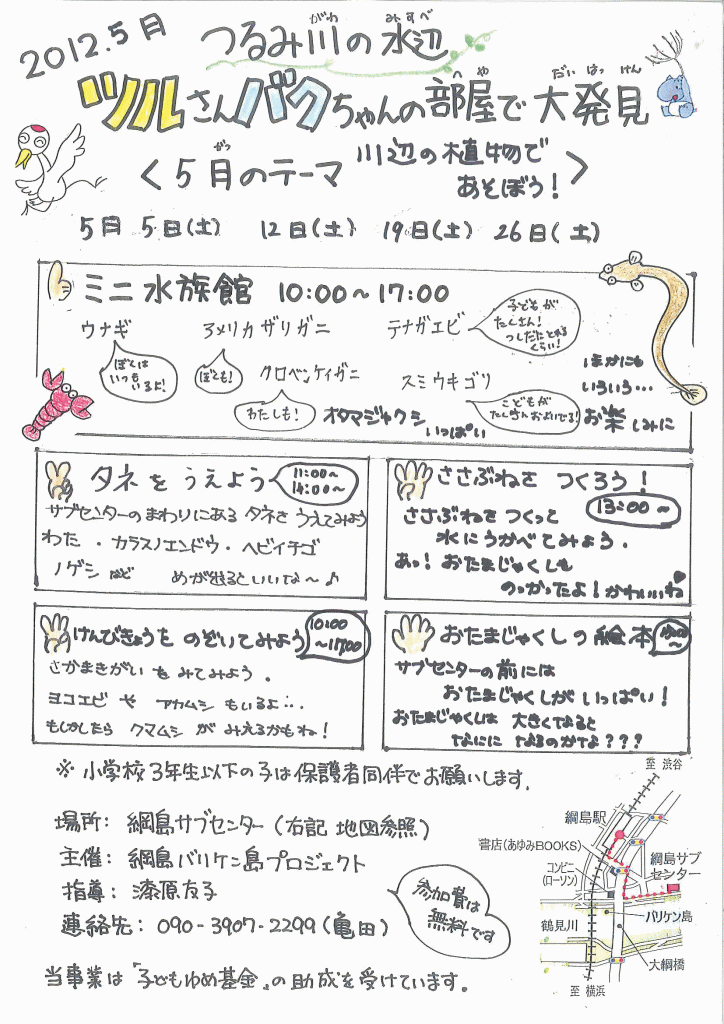 2012.5月
つるみ川の水辺
がわ みずべ
ツルさんバクちゃんの部屋で大発見
へや だいはっけん
〈5月のテーマ 川辺の植物で
がつ
あそぼう!〉
5月 5日(土) 12日(土) 19日(土) 26日(土)
ミニ水族館 10:00~17:00
ウナギ アメリカザリガニ テナガエビ
子どもが
たくさん!
つしだたとれる
くらい!
ぼくは
いつも
いるよ!
ぼくも!
クロベンケイガニ スミウキゴリ
わたしも!
オタマジャクシ
いっぱい
こどもが
たくさんおよいでる!
ほかにも
いろいろ…
お楽しみに
タネをうえよう
11:00~
14:00~
サブセンターのまわりにあるタネをうえてみよう
わた・カラスノエンドウ・ヘビイチゴ
ノゲシなど めが出るといいな~♪
ささぶねをつくろう!
13:00~
ささぶねをつくって
水にうかべてみよう.
あっ!おたまじゃくしも
のっかったよ!かわいいね
けんびきょうをのぞいてみよう
10:00
~17:00
さかまきがいをみてみよう.
ヨコエビや アカムシもいるよ…
もしかしたら クマムシがみえるかもね!
おたまじゃくしの絵本
サブセンターの前には
おたまじゃくしがいっぱい!
おたまじゃくしは 大きくなると
なにに なるのかな???
※小学校3年生以下の子は保護者同伴でお願いします.
場所: 綱島サブセンター(右記 地図参照)
主催: 綱島バリケン島プロジェクト
指導: 漆原友子
連絡先: 090-3907-2299(亀田)
参加費は
無料です
当事業は「子どもゆめ基金」の助成を受けています.
至 渋谷
綱島駅
書店(あゆみBOOKS)
コンビニ
(ローソン)
綱島サブ
センター
バリケン島
鶴見川
大綱橋
至 横浜